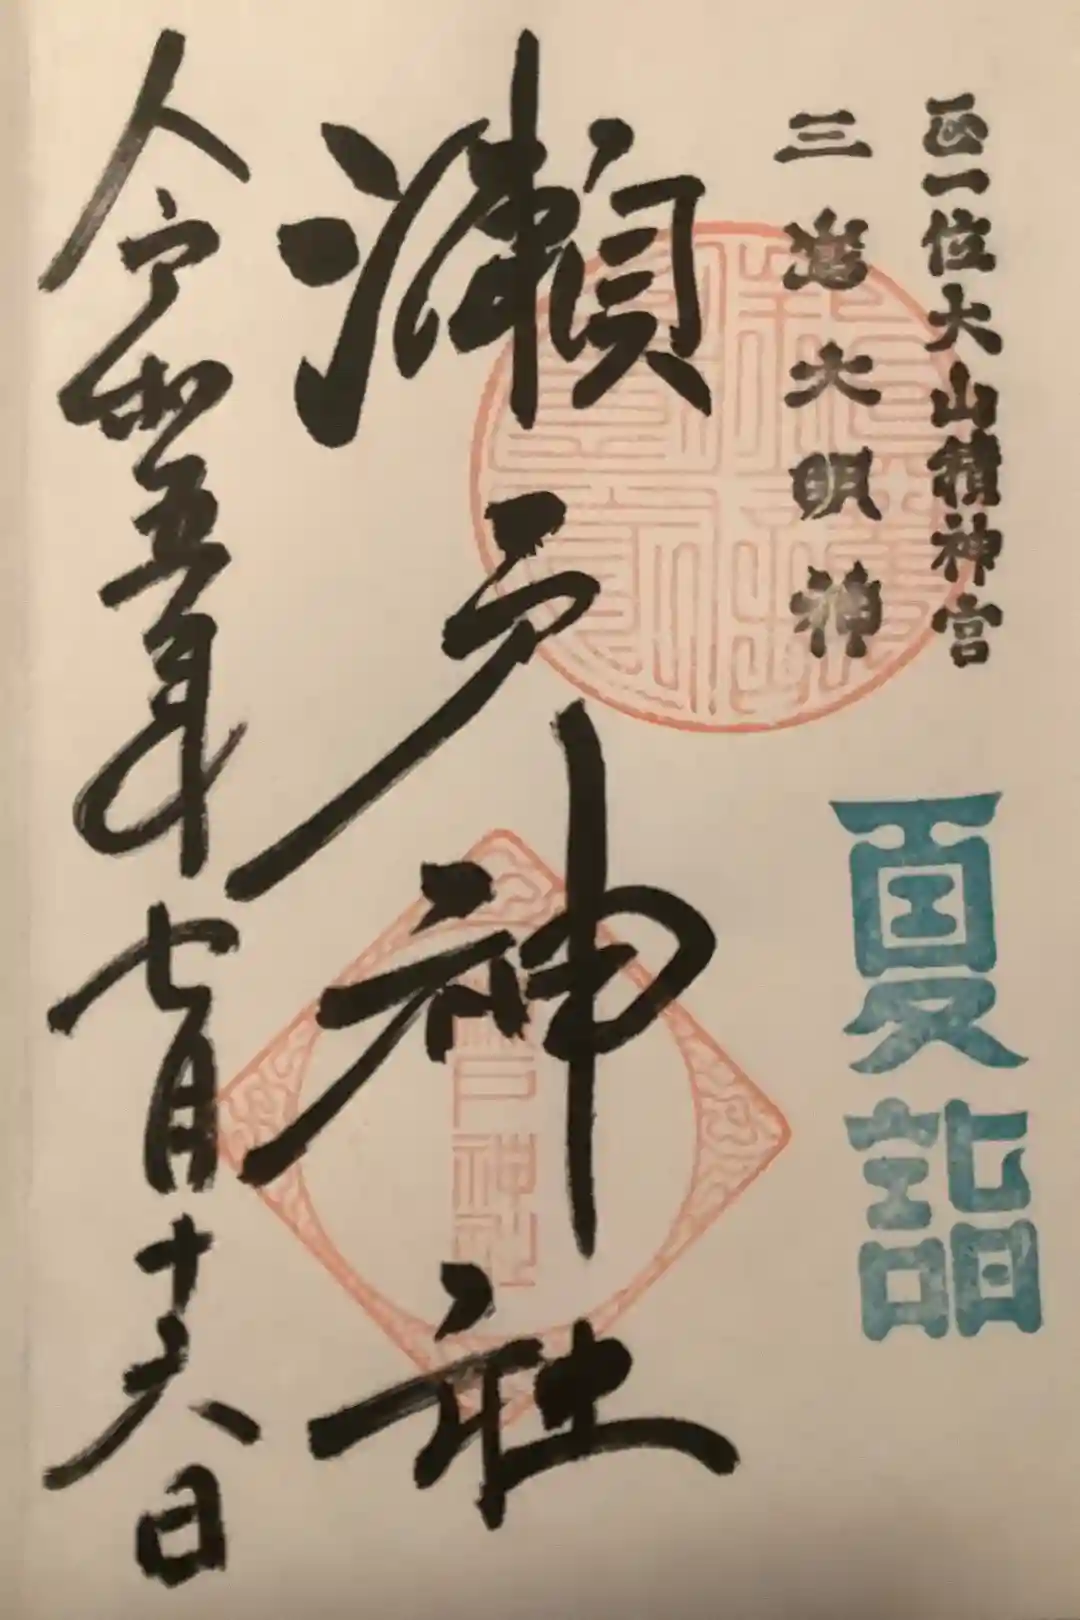 正一位大山積神宮
三嶌大明神
夏詣
瀬戸神社
戸神社
令和五年七月十六日